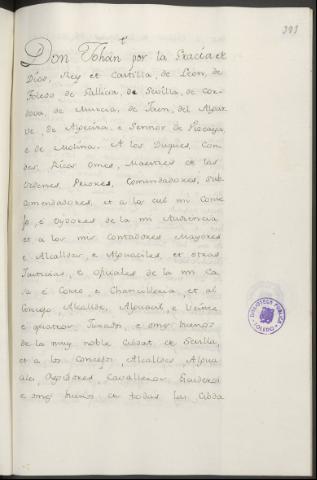 393
Don Yohán por la Gracia de
Dios, Rey de Castilla, de Leon, de
Toledo de Gallicia, de Sevilla, de Cor-
dova, de Murcia, de Jaen, del Algar-
ve, de Algecira, e Sennor de Vizcaya,
e de Molina. A los Duques, Con-
des, Ricos Omes, Maestres de las
Ordenes, Priores, Comendadores, Sub-
comendadores, et a los del mi Conse-
jo, e Oydores de la mi Audiencia
et a los mis Contadores Mayores
e Alcalldes, e Alguaciles, et otras
Justicias, e Oficiales de la mi Ca-
sa é Corte, e Chancilleria, et al
Concejo, Alcallde, Alguacil, e Veinte
e quatro, Jurados, e omes buenos
de la muy noble Cibdat de Sevilla,
et a los Concejos, Alcalldes Algua-
ciles, Regidores, Cavalleros Escuderos
e omes buenos de todas las Cibda
BIBLIOTECA PUBLICA
TOLEDO